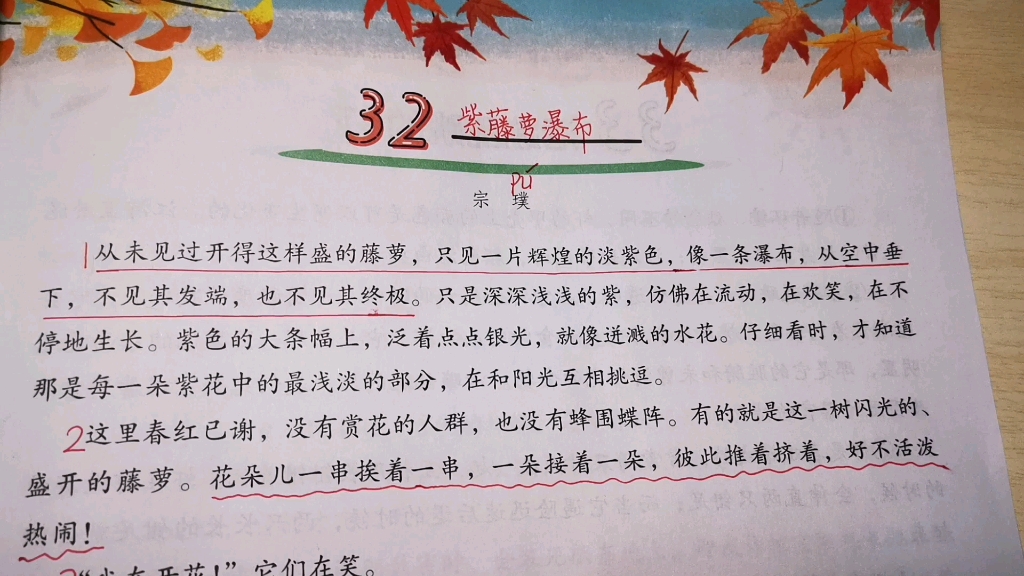 32 紫藤萝瀑布
pú
宗 璞
1从未见过开得这样盛的藤萝，只见一片辉煌的淡紫色，像一条瀑布，从空中垂
下，不见其发端，也不见其终极。只是深深浅浅的紫，仿佛在流动，在欢笑，在不
停地生长。紫色的大条幅上，泛着点点银光，就像迸溅的水花。仔细看时，才知道
那是每一朵紫花中的最浅淡的部分，在和阳光互相挑逗。
2这里春红已谢，没有赏花的人群，也没有蜂围蝶阵。有的就是这一树闪光的、
盛开的藤萝。花朵儿一串挨着一串，一朵接着一朵，彼此推着挤着，好不活泼
热闹！
在开花！”它们在笑。